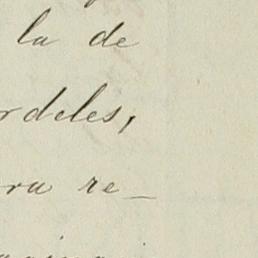 la de
rdeles,
ra re-